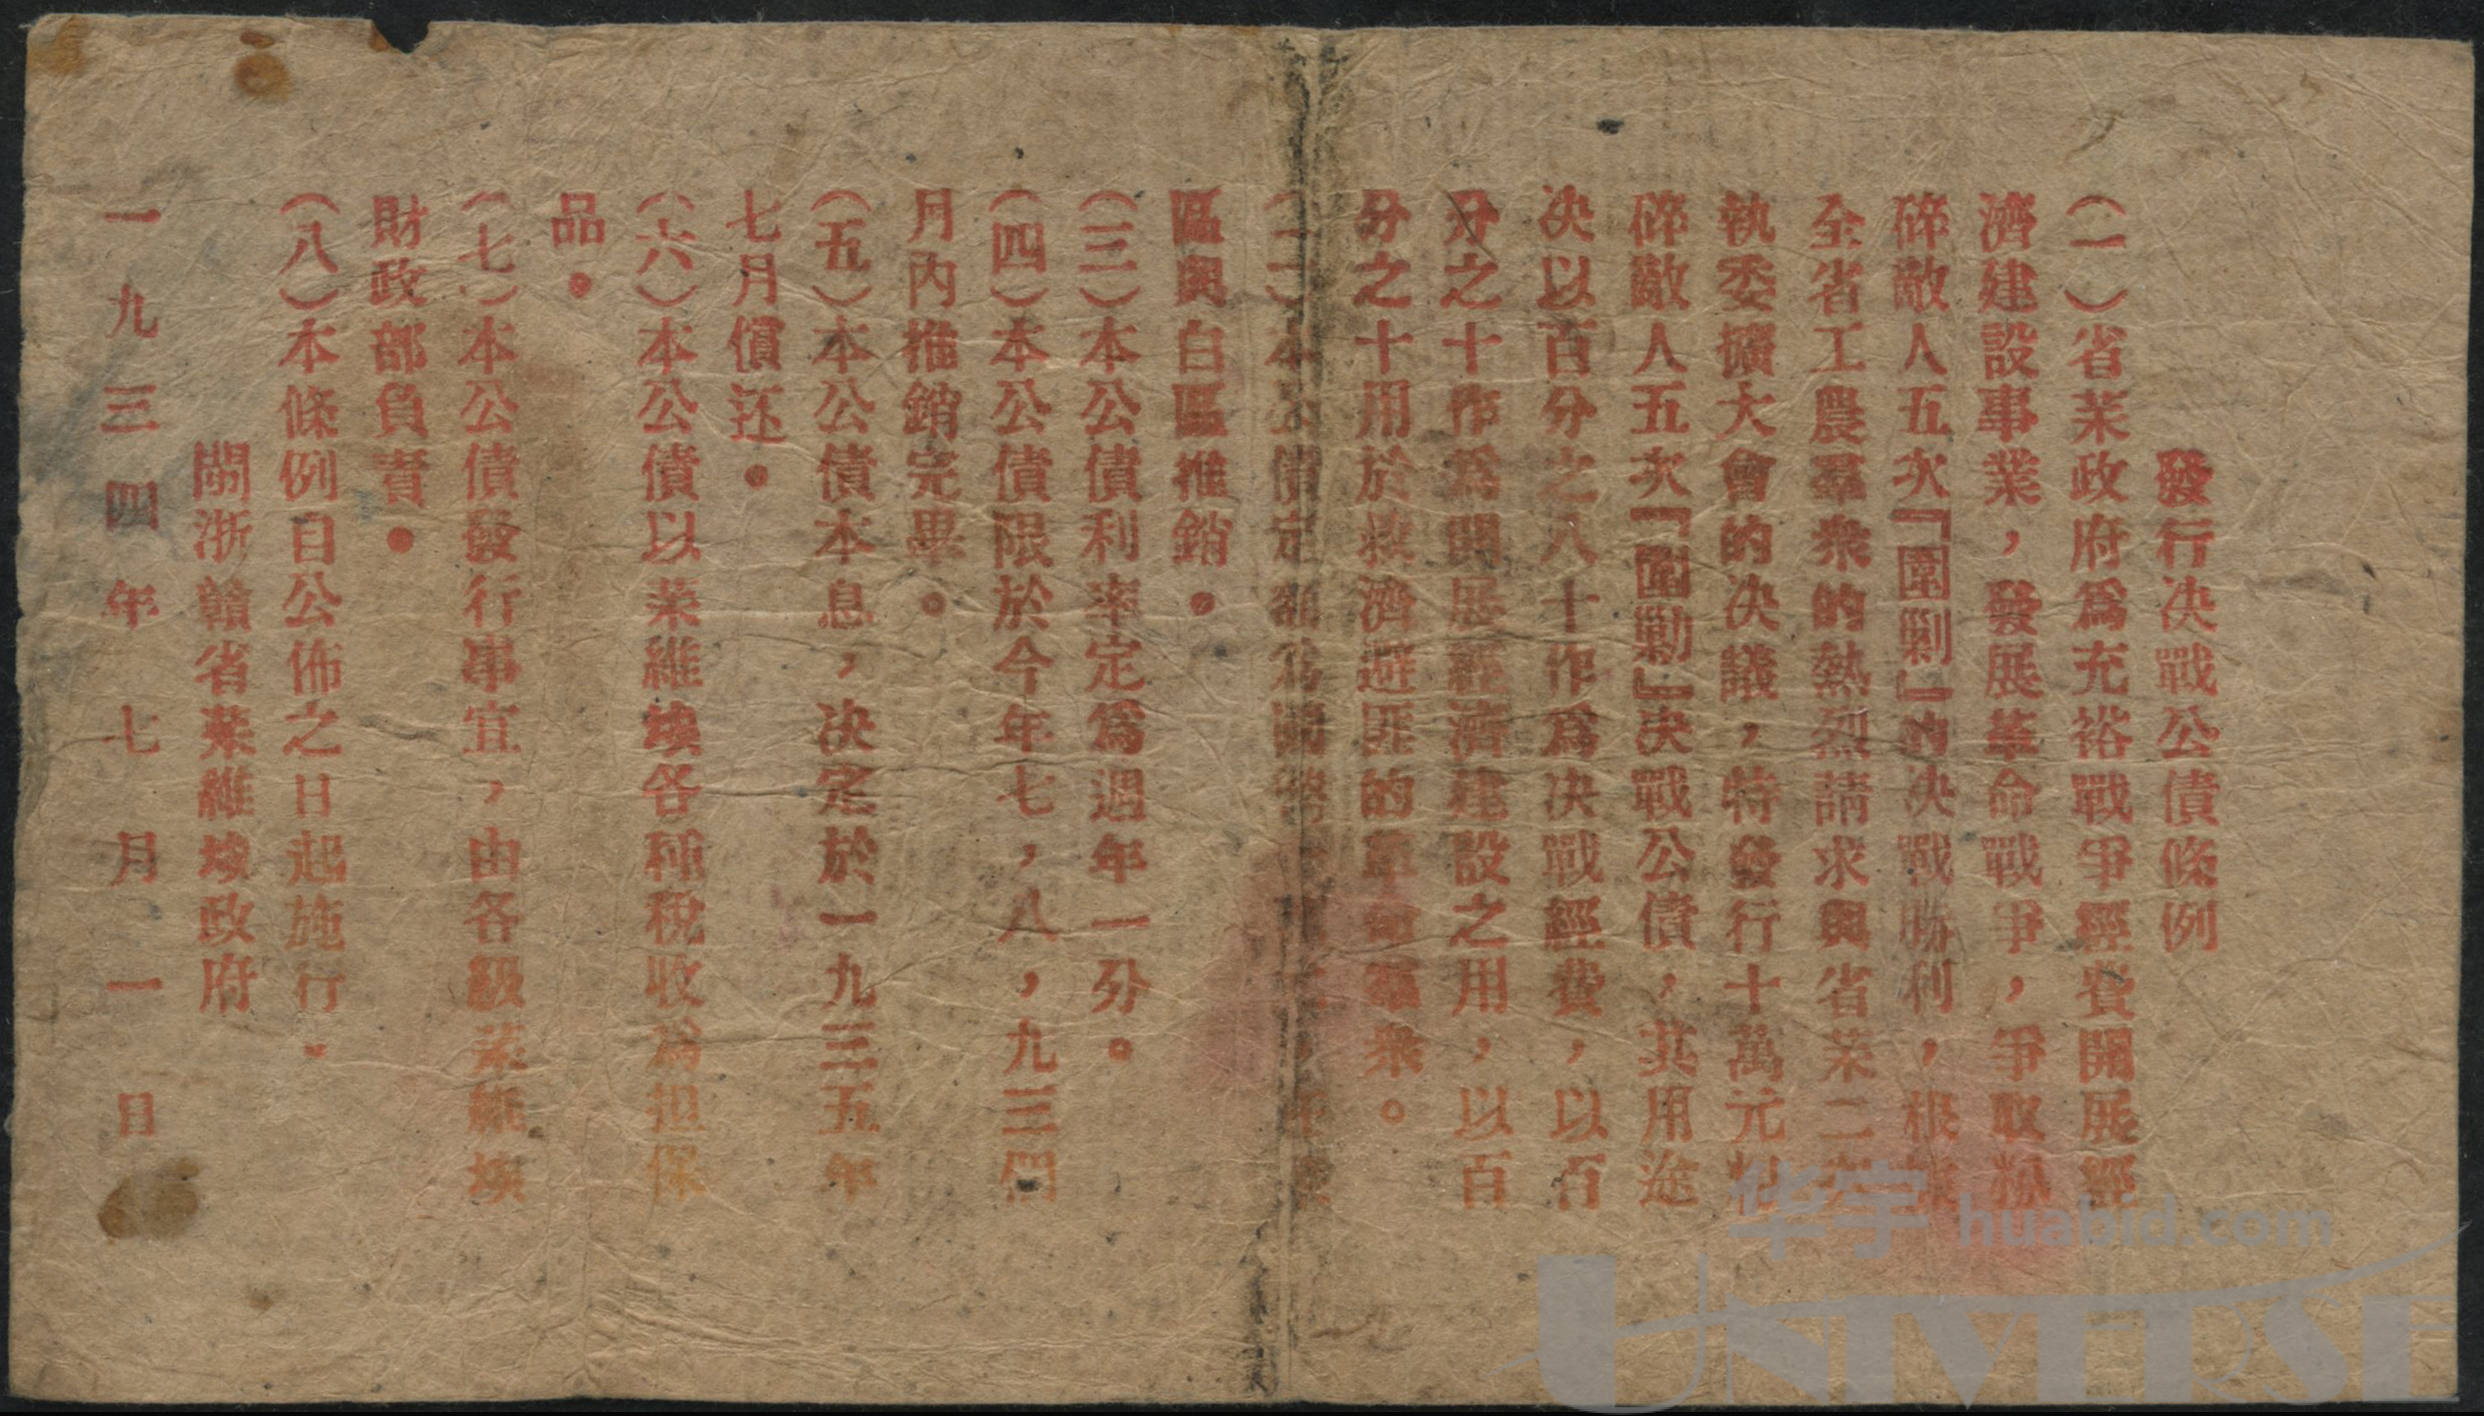 發行决戰公債條例
(一)省苏政府爲充裕戰爭經費開展經
濟建設事業，發展革命戰爭，爭取粉
碎敵人五次『圍剿』的决戰勝利，根據
全省工農羣衆的熱烈請求與省苏二次
執委擴大會的决議，特發行十萬元粉
碎敵人五次『圍剿』决戰公債，其用途
决以百分之八十作爲决戰經費，以百
分之十作爲開展經濟建設之用，以百
分之十用於救濟避匪的革命羣衆。
(二)本公債定額爲
區與白區推銷。
(三)本公債利率定爲週年一分。
(四)本公債限於今年七，八，九三個
月內推銷完畢。
(五)本公債本息，决定於一九三五年
七月償还。
(六)本公債以苏維埃各種稅收爲担保
品。
(七)本公債發行事宜，由各級苏維埃
財政部負責。
(八)本條例自公佈之日起施行。
閩浙贛省苏維埃政府
一九三四年七月一日
华宇 huabid.com
UNIVERSE